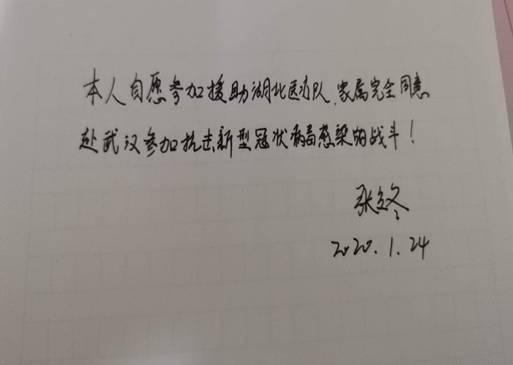 本人自愿参加援助湖北医疗队,家属完全同意
赴武汉参加抗击新型冠状病毒感染的战斗!
张
2020.1.24